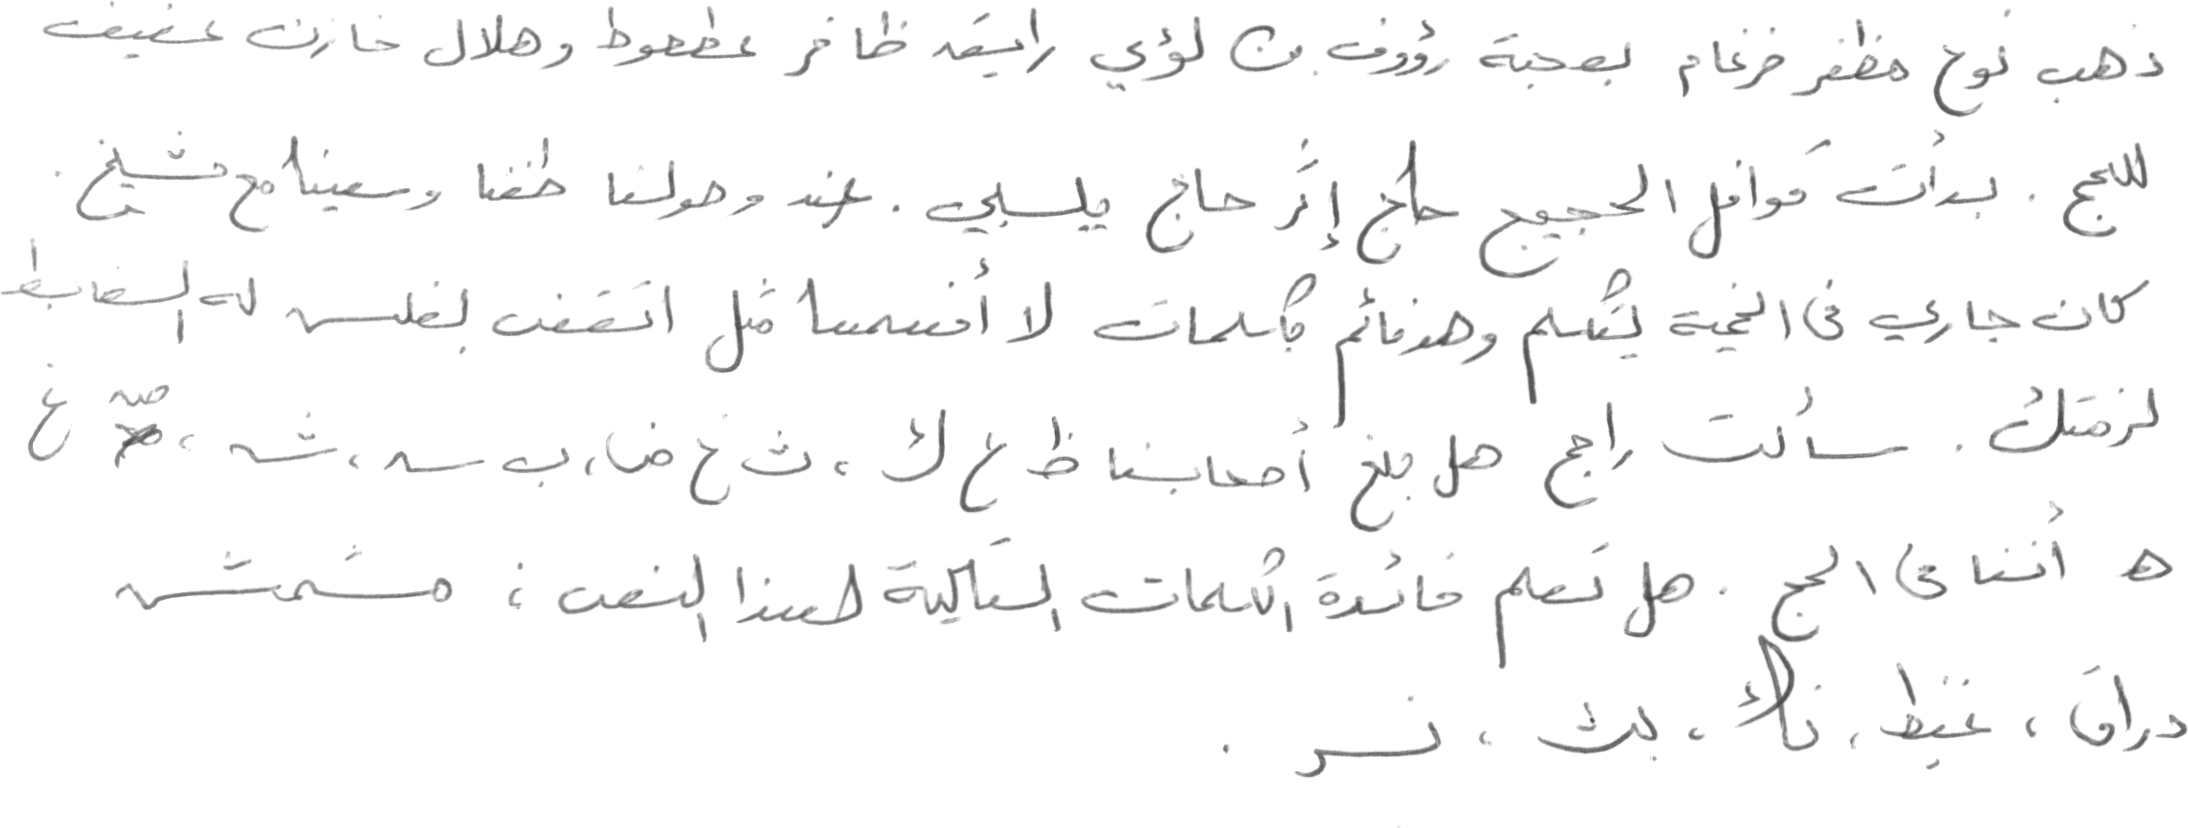 ذهب نوح مظفر ضرغام بصحبة رؤوف بن لؤي رايقه ظافر عطعوط وهلال خازن عفيف
للحج . بدأت قوافل الحجيج حاج إثر حاج يلبي . عند وصولنا طفنا وسعينا مع شيخ .
كان جاري في الخيمة يتكلم وهو نائم بكلمات لا أفهمها مثل اتقفت بغلس له الضابط
لزمتك . سألت راجح هل بلغ أصحابنا ظ غ ك ، ث خ ض ، ب س ، ش ، ص غ
ه أننا في الحج . هل تعلم فائدة الكلمات التالية لهذا النص : مشمش
دراق ، غيظ ، ناك ، بك ، نسر .